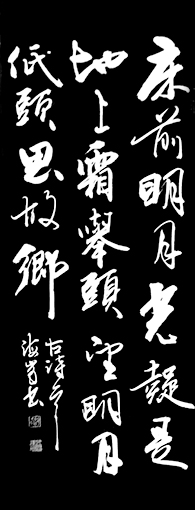 床前明月光疑是
地上霜舉頭望明月
低頭思故鄉
古詩
書